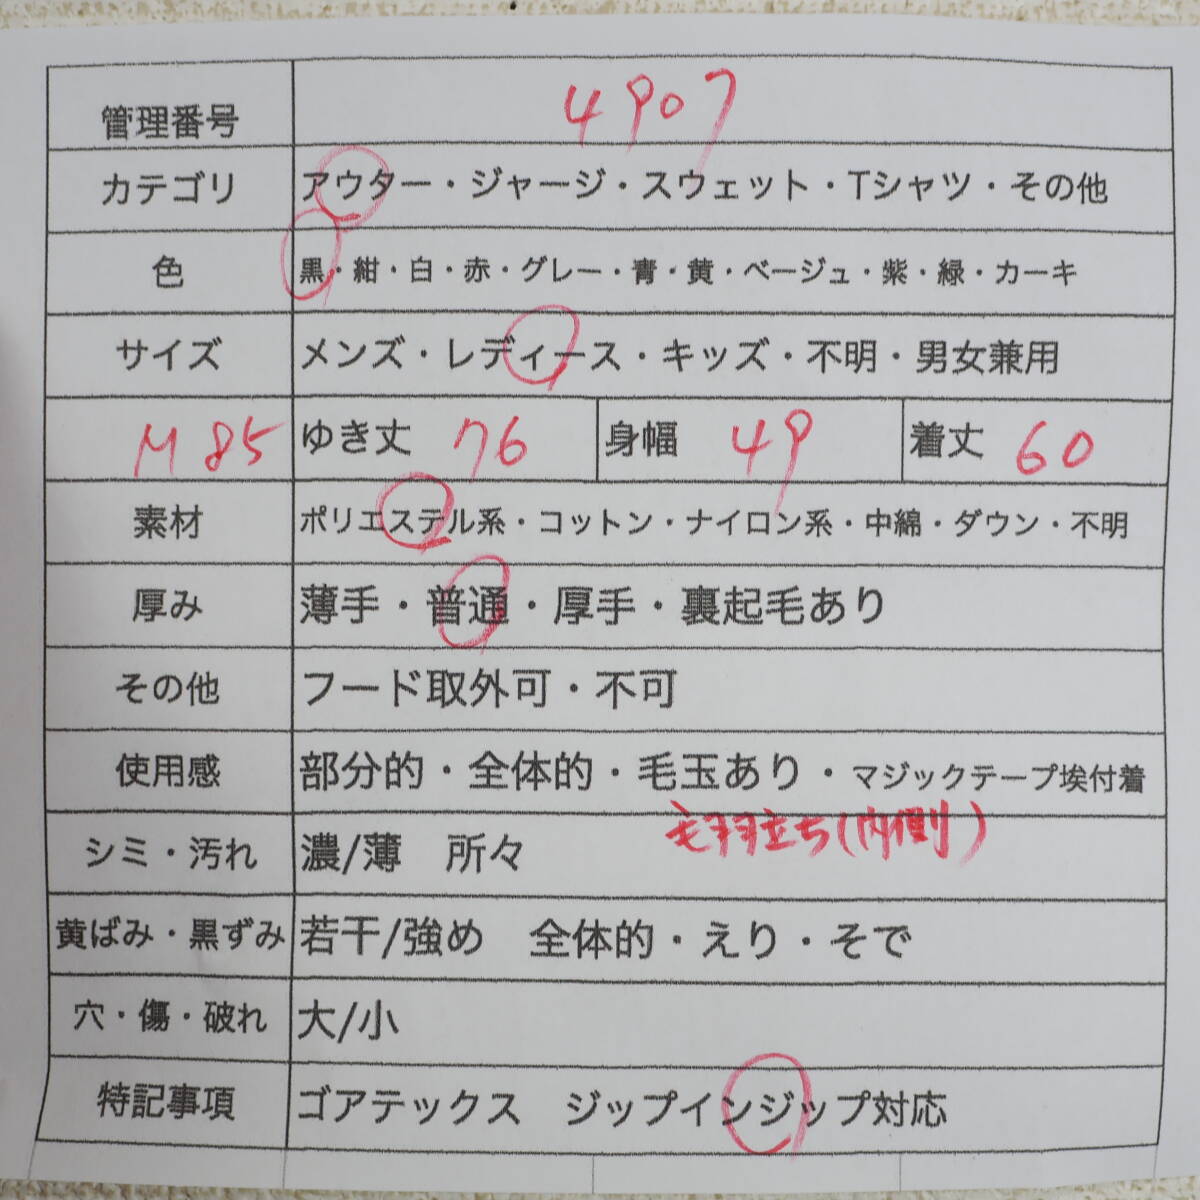 管理番号 4907
カテゴリ アウター・ジャージ・スウェット・Tシャツ・その他
色 黒・紺・白・赤・グレー・青・黄・ベージュ・紫・緑・カーキ
サイズ メンズ・レディース・キッズ・不明・男女兼用
M 85 ゆき丈 76 身幅 49 着丈 60
素材 ポリエステル系・コットン・ナイロン系・中綿・ダウン・不明
厚み 薄手・普通・厚手・裏起毛あり
その他 フード取外可・不可
使用感 部分的・全体的・毛玉あり・マジックテープ埃付着
毛羽立ち(内側)
シミ・汚れ 濃/薄 所々
黄ばみ・黒ずみ 若干/強め 全体的・えり・そで
穴・傷・破れ 大/小
特記事項 ゴアテックス ジップインジップ対応